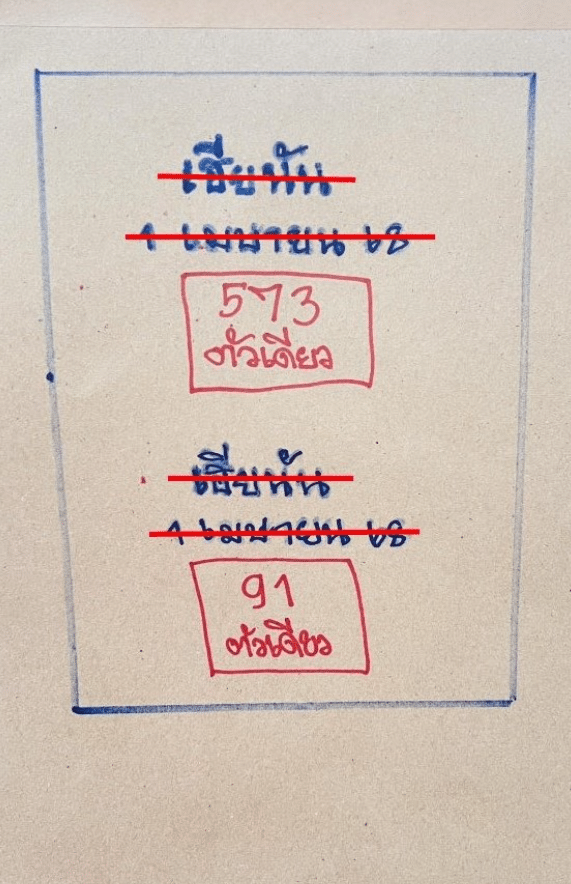 เฮียนัน
1 เมษายน 68
573
ตัวเดียว
เฮียนัน
1 เมษายน 68
91
ตัวเดียว